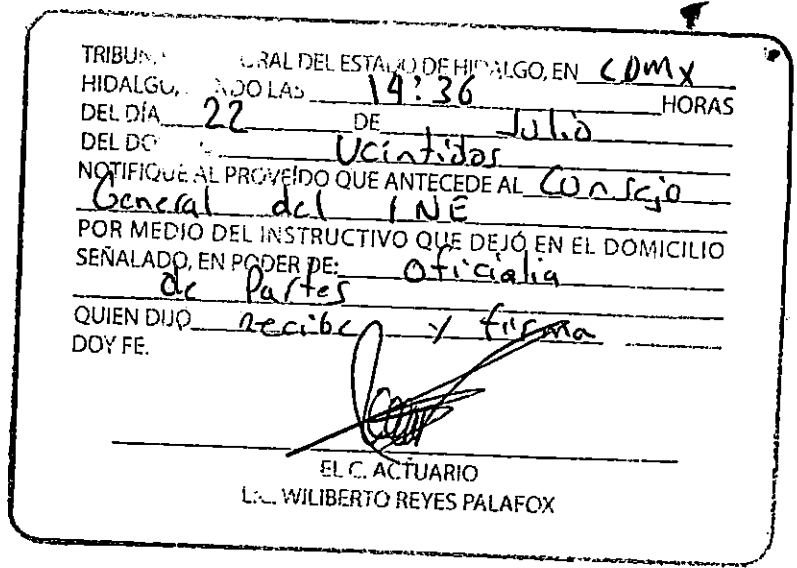 TRIBUN RAL DEL ESTADO DE HIDALGO, EN CDMX
HIDALGO, NDO LAS 14:36 HORAS
DEL DÍA 22 DE Julio
DEL DO Veintidos
NOTIFIQUE AL PROVEÍDO QUE ANTECEDE AL Consejo
General del INE
POR MEDIO DEL INSTRUCTIVO QUE DEJÓ EN EL DOMICILIO
SEÑALADO, EN PODER DE: Oficialia
de Partes
QUIEN DIJO recibe y firma
DOY FE.
EL C. ACTUARIO
WILIBERTO REYES PALAFOX